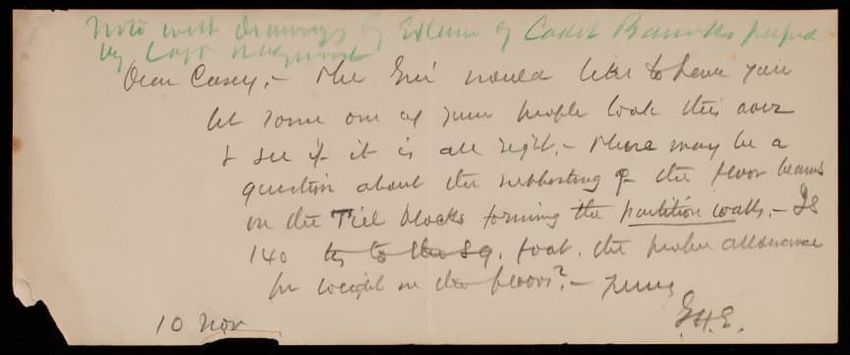 Note with drawings of Extension of Cadet Barracks prepared
by Capt
Dear Casey, - The Gen'l would like to have you
let some one of your people look this over
& see if it is all right. - There may be a
question about the supporting of the floor beams
on the Tiel blocks forming the partition walls. - Is
140 to the sq. foot. the proper allowance
for weight on the floors? - Yours
G.H.E.
10 Nov